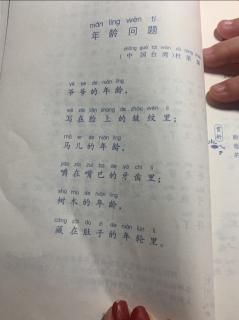 nián líng wèn tí
年龄问题
zhōng guó tái wān dù róng
(中国台湾)杜荣
yé ye de nián líng
爷爷的年龄,
xiě zài liǎn shàng de zhòu wén lǐ
写在脸上的皱纹里;
mǎ er de nián líng
马儿的年龄,
jiáo zài zuǐ ba de yá chǐ lǐ
嚼在嘴巴的牙齿里;
shù mù de nián líng
树木的年龄,
cáng zài dù zi de nián lún lǐ
藏在肚子的年轮里。
赏析